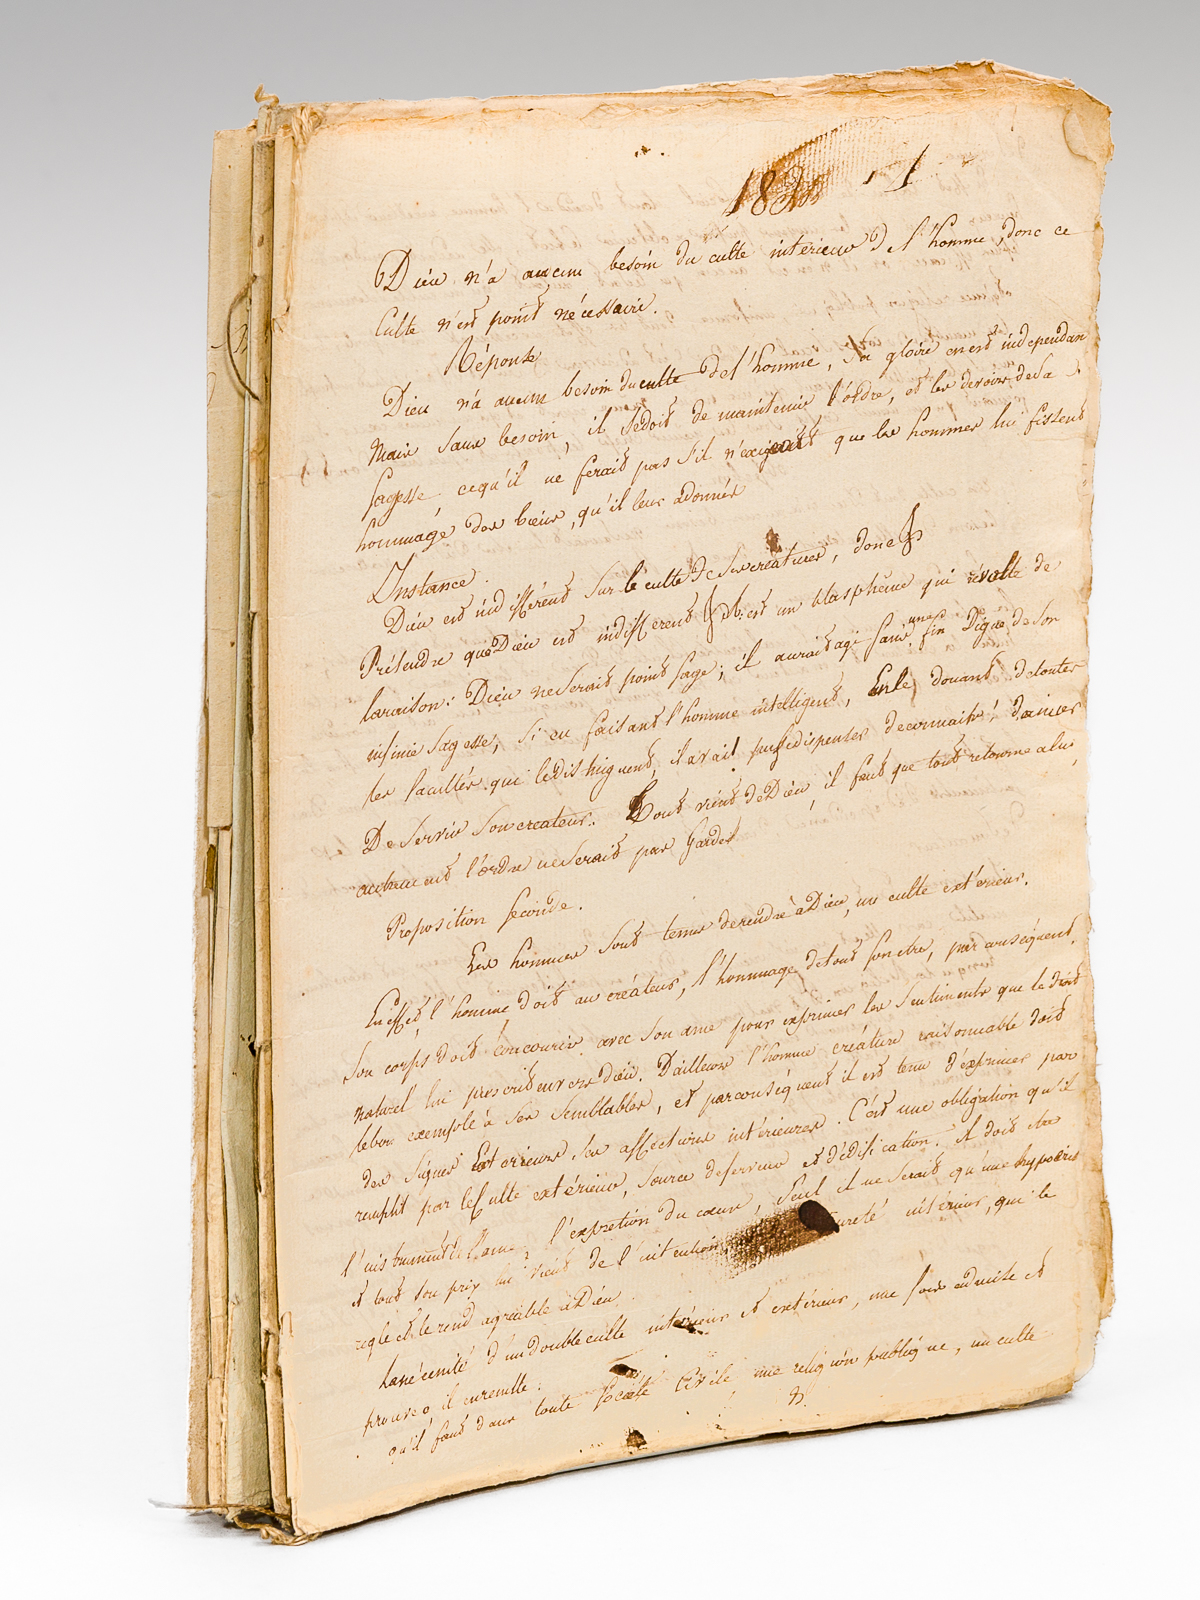 18
Dieu n'a aucun besoin du culte interieur de l'homme, donc ce
Culte n'est point nécessaire.
Réponse
Dieu n'a aucun besoin du culte de l'homme, sa gloire en est independan
mais sans besoin, il se doit de maintenir l'ordre, et les devoirs de sa
sagesse, ce qu'il ne ferait pas s'il n'exigeait que les hommes lui fissent
hommage des biens, qu'il leur a donnés
Instance.
Dieu est indifférent sur le culte de ses creatures, donc
Prétendre que Dieu est indifferent est un blasphême qui révolte
la raison: Dieu ne serait point sage; il aurait agi sans une fin Digne de son
infinie sagesse, si en faisant l'homme intelligent, En le douant de toutes
les facultés qui le distinguent, il avait pu se dispenser de connaitre, d'aimer
De servir Son createur. Tout vient de Dieu, il faut que tout retourne a lui,
autrement l'ordre ne serait pas Gardé
Proposition seconde.
Les hommes sont tenus de rendre à Dieu, un culte extérieur.
En effet, l'homme doit au créateur, l'hommage de tout son être, par conséquent,
Son corps doit concourir avec son ame pour exprimer les sentiments que le droit
naturel lui prescrit envers dieu. D'ailleurs l'homme créature raisonnable doit
le bon exemple à ses semblables, et par conséquent il est tenu d'exprimer par
des signes Exterieurs ses affections intérieures. C'est une obligation qu'il
remplit par le Culte extérieur, source de ferveur et d'édification. il doit être
l'instrument de l'ame, l'expression du cœur, seul il ne serait qu'une hypocris
et tout son prix lui vient de l'intention pureté intérieur, qui le
regle et le rend agréable à Dieu.
La nécessité d'un double culte intérieur et extérieur, une fois admise et
prouvé, il en resulte:
qu'il faut dans toute société Civile une religion publique, un culte